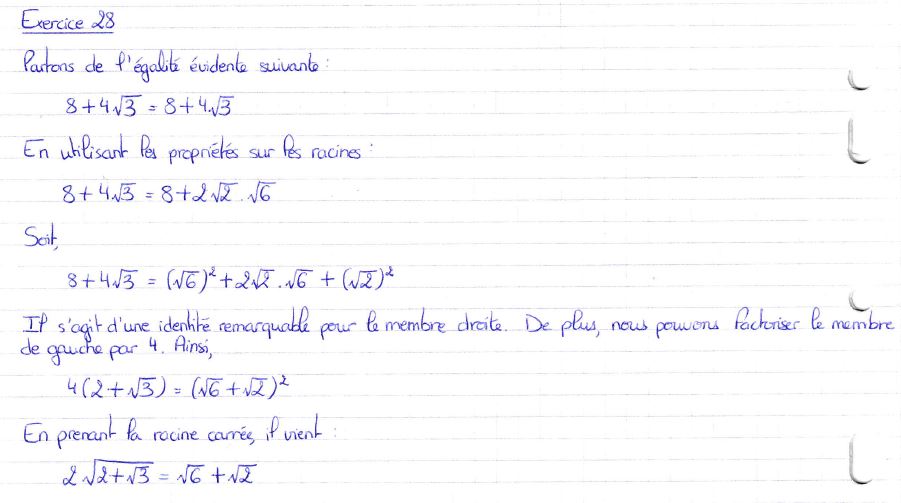 Exercice 28
Partons de l'égalité évidente suivante :
8 + 4√3 = 8 + 4√3
En utilisant les propriétés sur les racines :
8 + 4√3 = 8 + 2√2 . √6
Soit,
8 + 4√3 = (√6)² + 2√2 . √6 + (√2)²
Il s'agit d'une identité remarquable pour le membre droite. De plus, nous pouvons factoriser le membre
de gauche par 4. Ainsi,
4(2 + √3) = (√6 + √2)²
En prenant la racine carrée, il vient :
2√(2 + √3) = √6 + √2